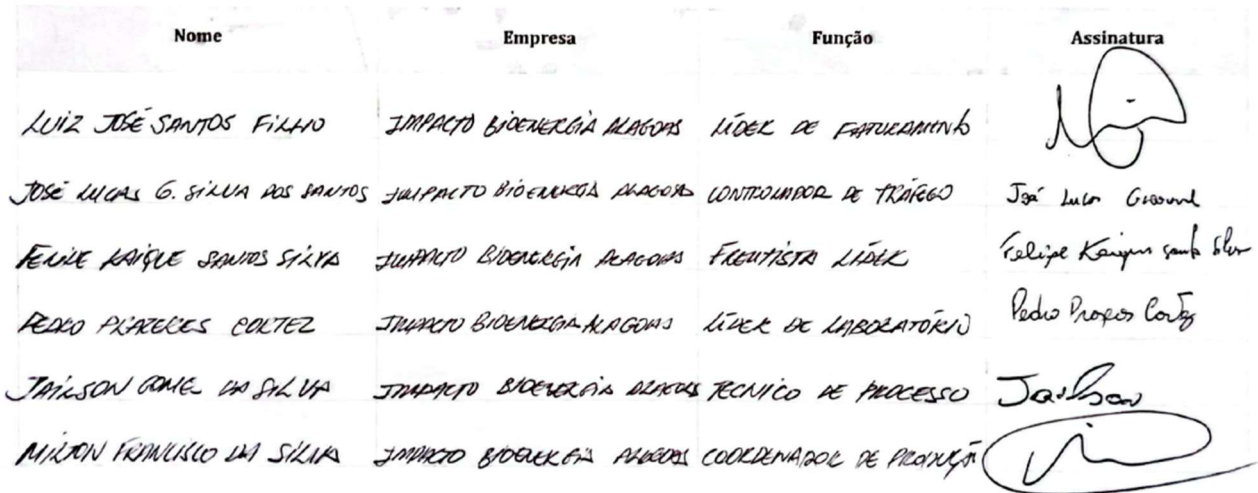 Nome Empresa Função Assinatura
LUIZ JOSÉ SANTOS FILHO IMPACTO BIOENERGIA ALAGOAS LÍDER DE FATURAMENTO
JOSÉ LUCAS G. SILVA DOS SANTOS IMPACTO BIOENERGIA ALAGOAS CONTROLADOR DE TRÁFEGO José Lucas
FELIPE KAIQUE SANTOS SILVA IMPACTO BIOENERGIA ALAGOAS FRENTISTA LÍDER Felipe Kaique Santos Silva
PEDRO PRAZERES CORTEZ IMPACTO BIOENERGIA ALAGOAS LÍDER DE LABORATÓRIO Pedro Cortez
JAILSON GOME DA SILVA IMPACTO BIOENERGIA ALAGOAS TECNICO DE PROCESSO Jailson
MILTON FRANCISCO DA SILVA IMPACTO BIOENERGIA ALAGOAS COORDENADOR DE PRODUÇÃO